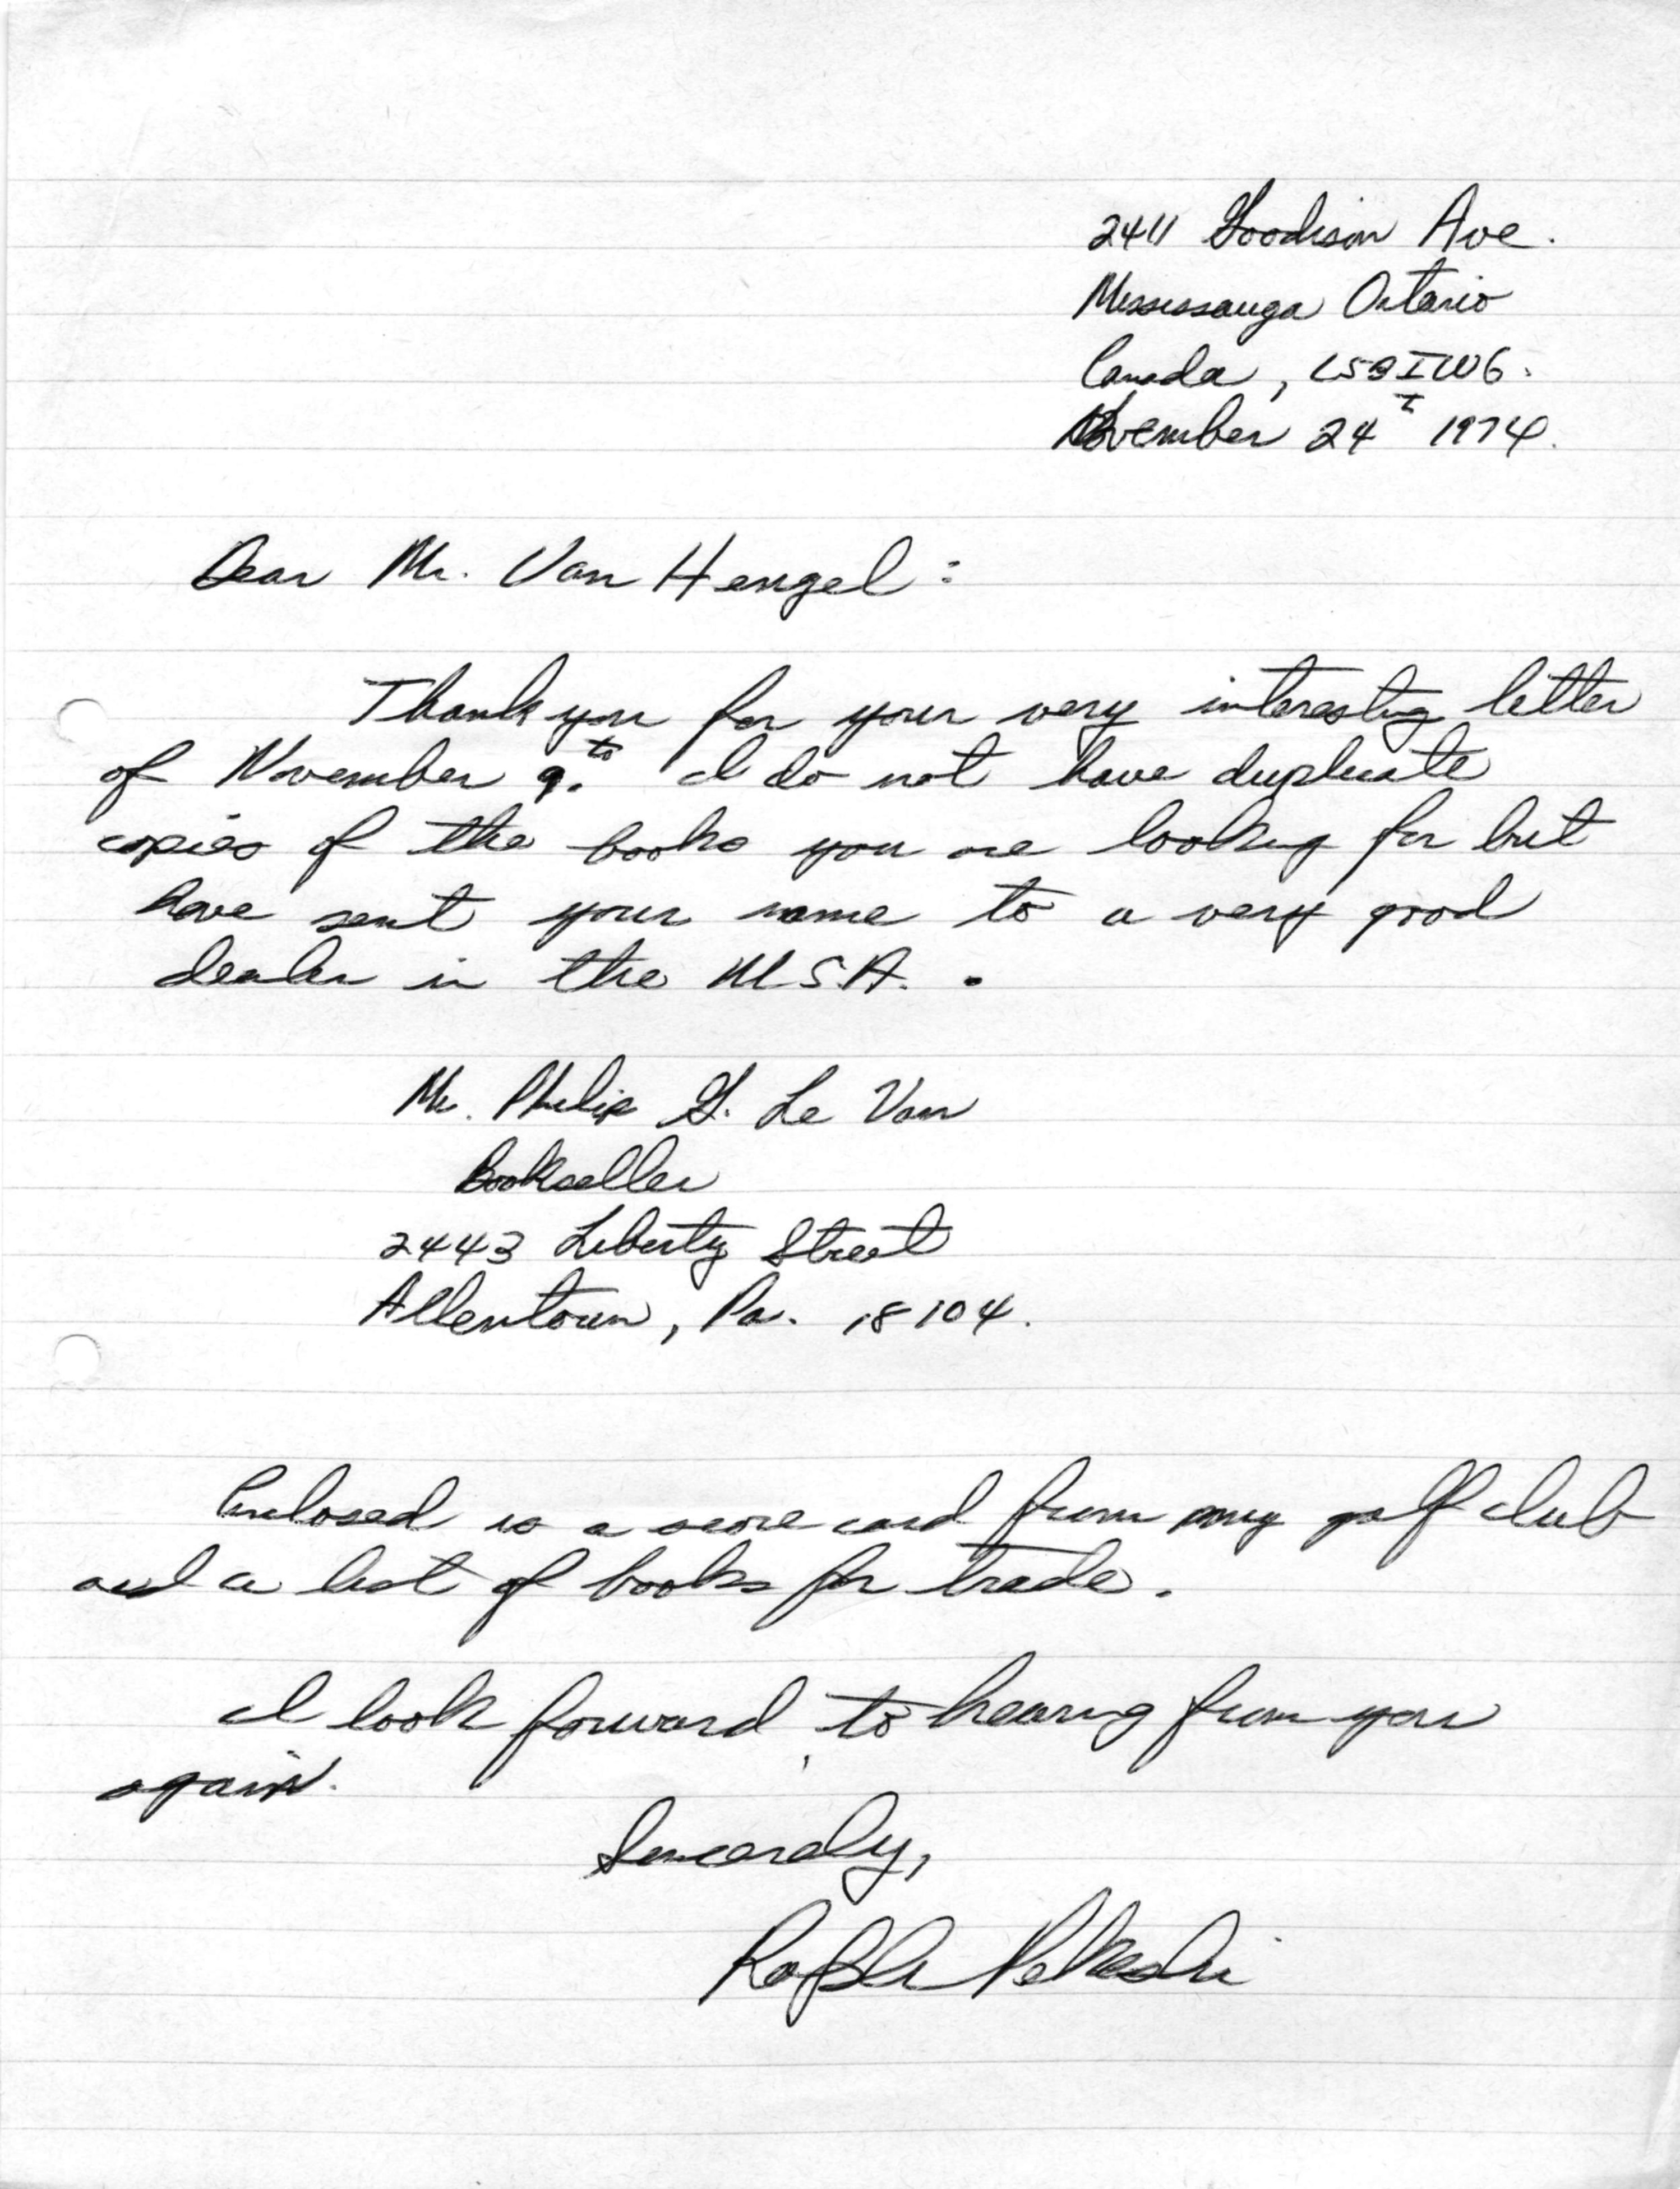 2411 Goodison Ave.
Mississauga Ontario
Canada, L5B IW6.
November 24th 1974.
Dear Mr. Van Hengel:
Thank you for your very interesting letter
of November 9th. I do not have duplicate
copies of the books you are looking for but
have sent your name to a very good
dealer in the U.S.A.
Mr. Philip G. Le Van
Bookseller
2443 Liberty Street
Allentown, Pa. 18104.
Enclosed is a score card from my golf club
and a list of books for trade.
I look forward to hearing from you
again.
Sincerely,
Ralph